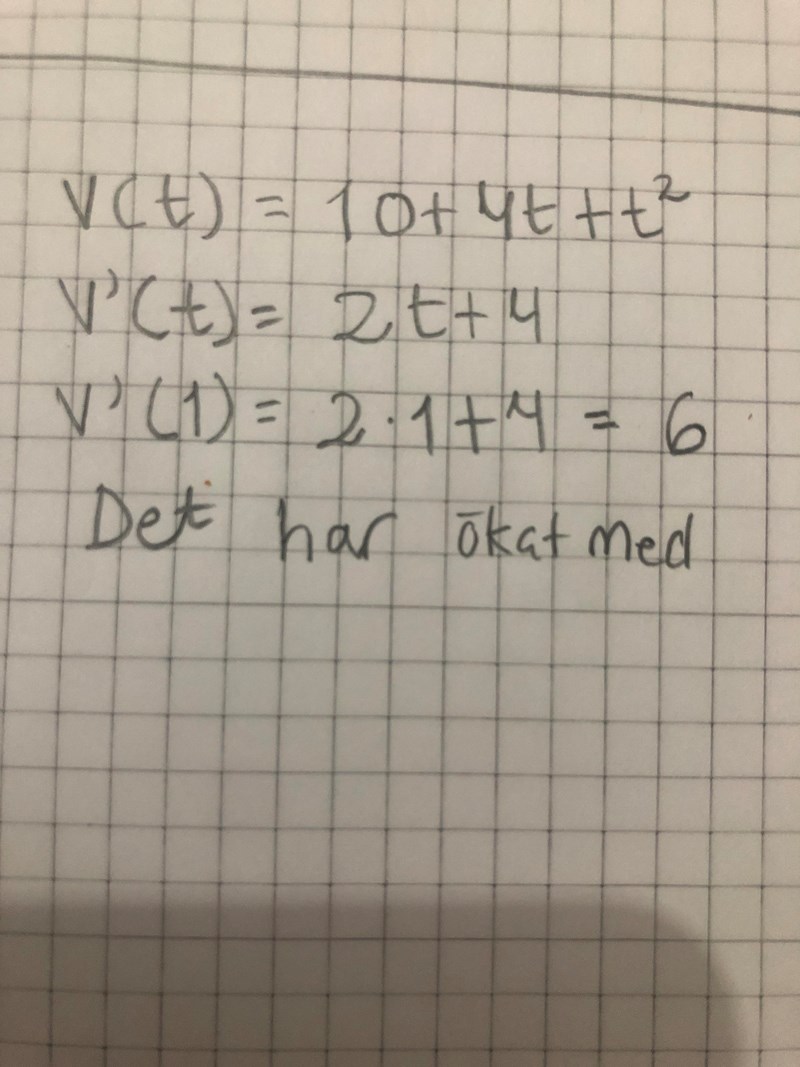 V(t) = 10+4t+t²
V'(t) = 2t+4
V'(1) = 2·1+4 = 6
Det har ökat med